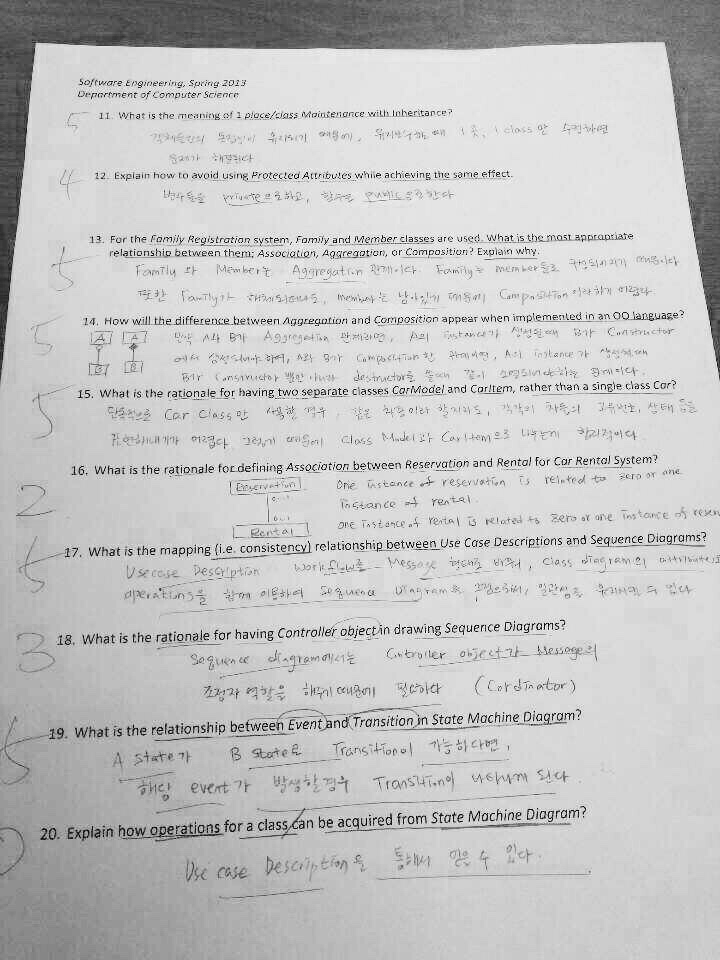 Software Engineering, Spring 2013
Department of Computer Science
5 11. What is the meaning of 1 place/class Maintenance with Inheritance?
유지되기 때문에, 유지보수할 때 1 곳, 1 class만 수정하면
문제가 해결된다
4 12. Explain how to avoid using Protected Attributes while achieving the same effect.
변수들을 private으로하고, 함수를 public으로한다
5 13. For the Family Registration system, Family and Member classes are used. What is the most appropriate
relationship between them; Association, Aggregation, or Composition? Explain why.
Family 와 Member는 Aggregation 관계이다. Family는 member들로 구성되어지기 때문이다
또한 Family가 해체되더라도, member는 남아있기 때문에 Composition이라하기 어렵다
5 14. How will the difference between Aggregation and Composition appear when implemented in an OO language?
A A 만약 A와 B가 Aggregation 관계라면, A의 instance가 생성될때 B가 Constructor
B B 에서 생성되어야 하며, A와 B가 Composition 한 관계라면, A의 instance가 생성될때
B가 Constructor 뿐만 아니라 destructor를 쓸때 같이 소멸되어야하는 관계이다.
5 15. What is the rationale for having two separate classes CarModel and CarItem, rather than a single class Car?
단순적으로 Car Class만 사용할 경우, 같은 차종이라 할지라도, 각각의 차들의 고유번호, 상태 등을
표현해내기가 어렵다. 그렇기 때문에 Class Model과 CarItem으로 나누는게 합리적이다.
2 16. What is the rationale for defining Association between Reservation and Rental for Car Rental System?
Reservation One instance of reservation is related to zero or one
0..1 instance of rental.
0..1
Rental one instance of rental is related to zero or one instance of reser
5 17. What is the mapping (i.e. consistency) relationship between Use Case Descriptions and Sequence Diagrams?
Usecase Description Workflow를 Message 형태로 바꿔, Class diagram의 attribute와
operations을 함께 이용하여 Sequence Diagram을 일관성을 유지시킬 수 있다
3 18. What is the rationale for having Controller object in drawing Sequence Diagrams?
Sequence diagram에서는 Controller object가 Message의
조정자 역할을 해주기때문에 필요하다 (Cordinator)
5 19. What is the relationship between Event and Transition in State Machine Diagram?
A state가 B state로 Transition이 가능하다면,
해당 event가 발생할경우 Transition이 나타나게 된다.
20. Explain how operations for a class can be acquired from State Machine Diagram?
Use case Description을 통해서 얻을 수 있다.